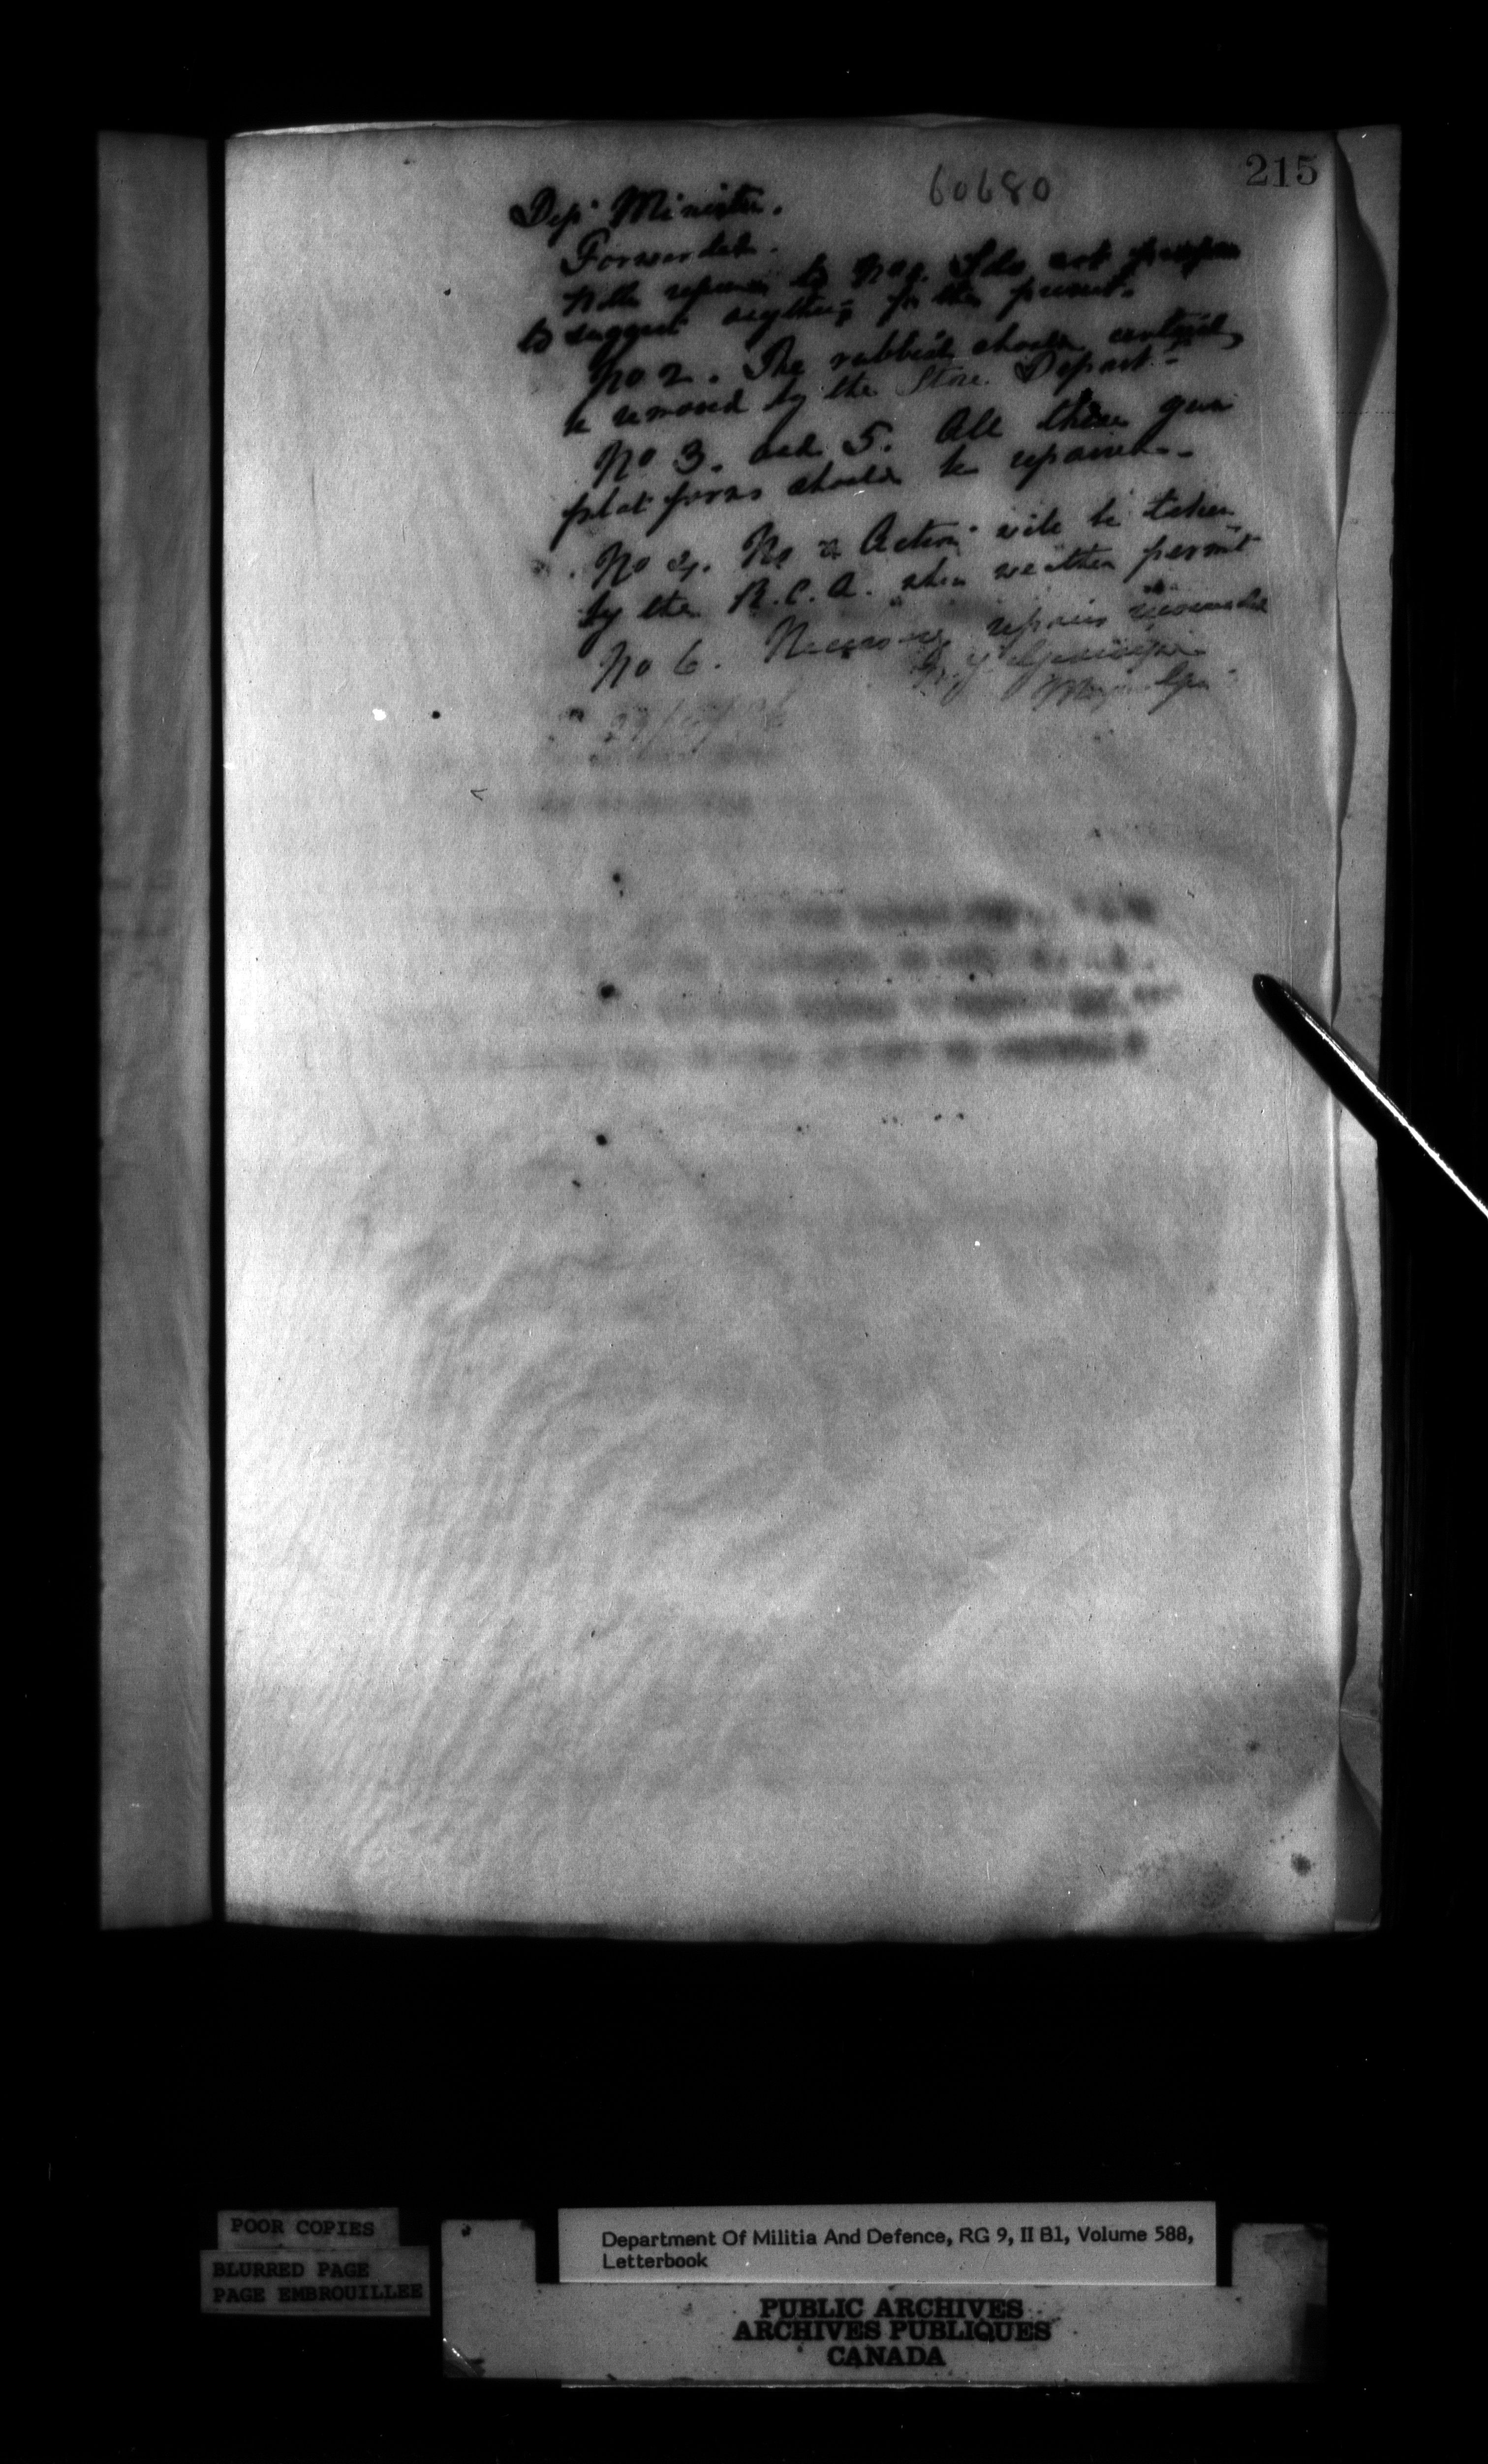 215
60680
Dep. Minister.
Forwarded.
With reference to No 1. I do not propose
to suggest anything for the present.
No 2. The rubbish should certainly
be removed by the Store Depart.-
No 3. and 5. All these gun
platforms should be repaired.-
No 4. No Action will be taken
by the R.C.A. when weather permit
No 6. Necessary repairs
POOR COPIES
BLURRED PAGE
PAGE EMBROUILLEE
Department Of Militia And Defence, RG 9, II B1, Volume 588,
Letterbook
PUBLIC ARCHIVES
ARCHIVES PUBLIQUES
CANADA